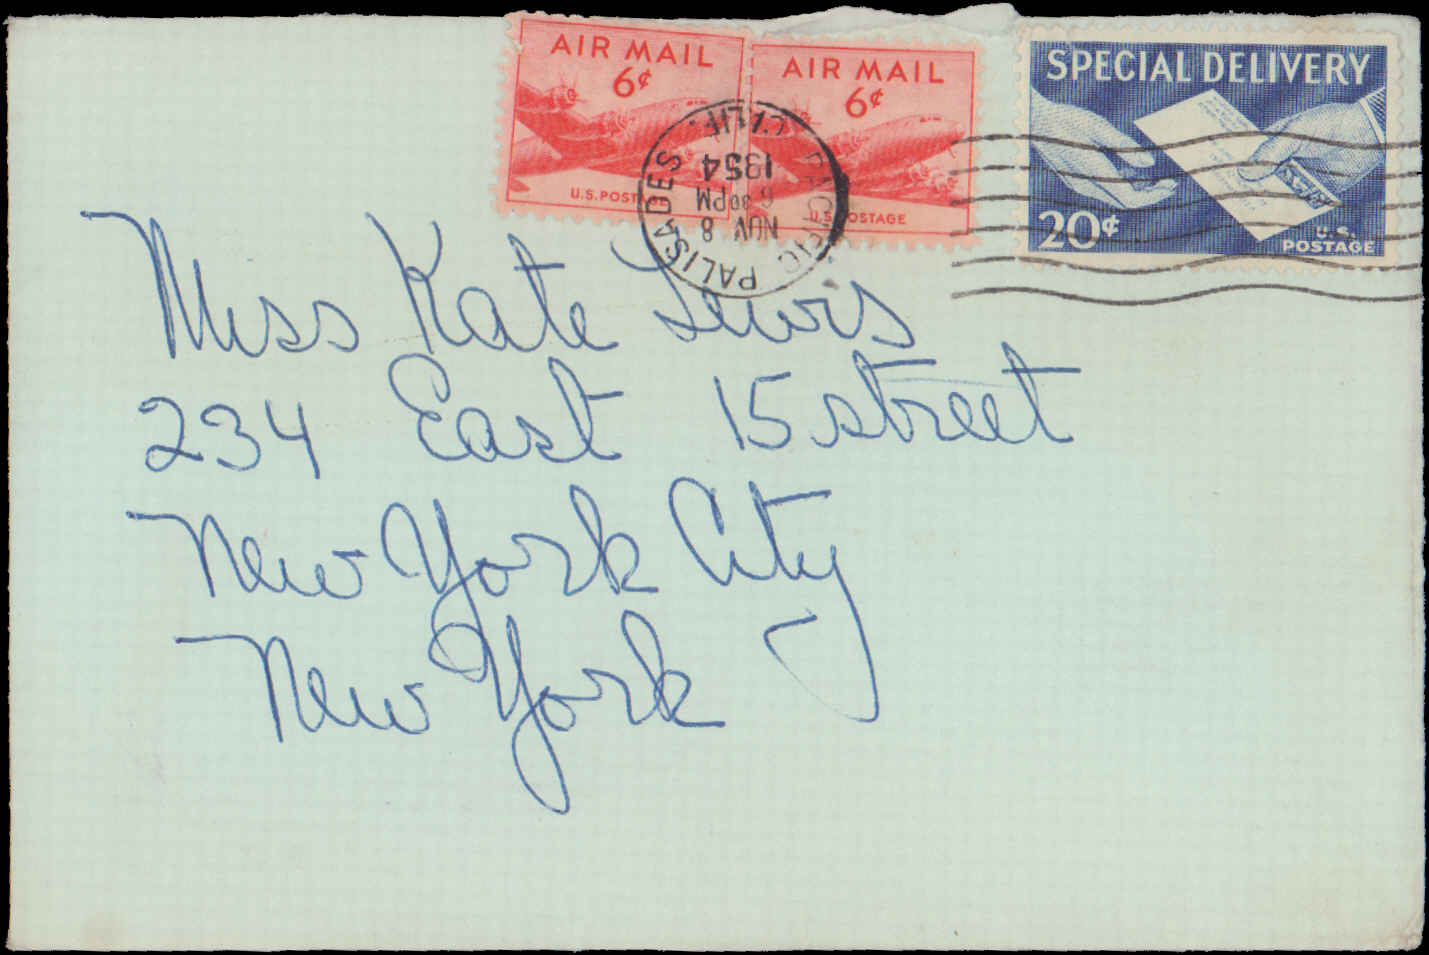 AIR MAIL
6¢
U.S. POSTAGE
AIR MAIL
6¢
U.S. POSTAGE
SPECIAL DELIVERY
20¢
U.S.
POSTAGE
PACIFIC PALISADES
CALIF.
NOV 8
6 30 PM
1954
Miss Kate Lewis
234 East 15 street
New York City
New York